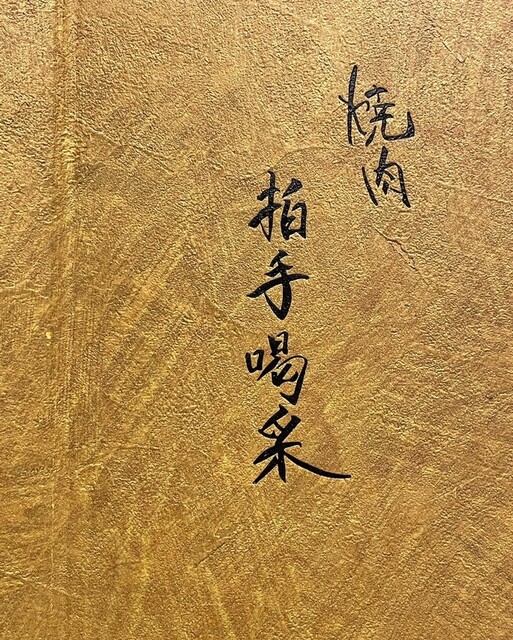 焼肉
拍手喝采